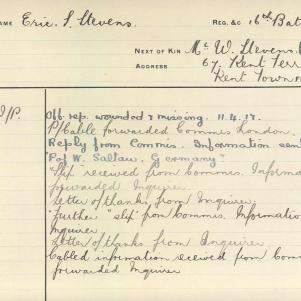 NAME Eric. S. Stevens. REG. &c 16th Bat
NEXT OF KIN Mr. W. Stevens.
ADDRESS 67, Kent Terr
Kent Town
Off. rep. wounded & missing. 11.4.17.
P/P Cable forwarded Commis London.
Reply from Commis. Information sent
"P of W. Saltau, Germany"
"Slip" received from Commis. Informa
forwarded Inquirer
Letter of thanks from Inquirer
"Further "slip" from Commis. Information
Inquirer
Letter of thanks from Inquirer
Cabled information received from Com
forwarded Inquirer